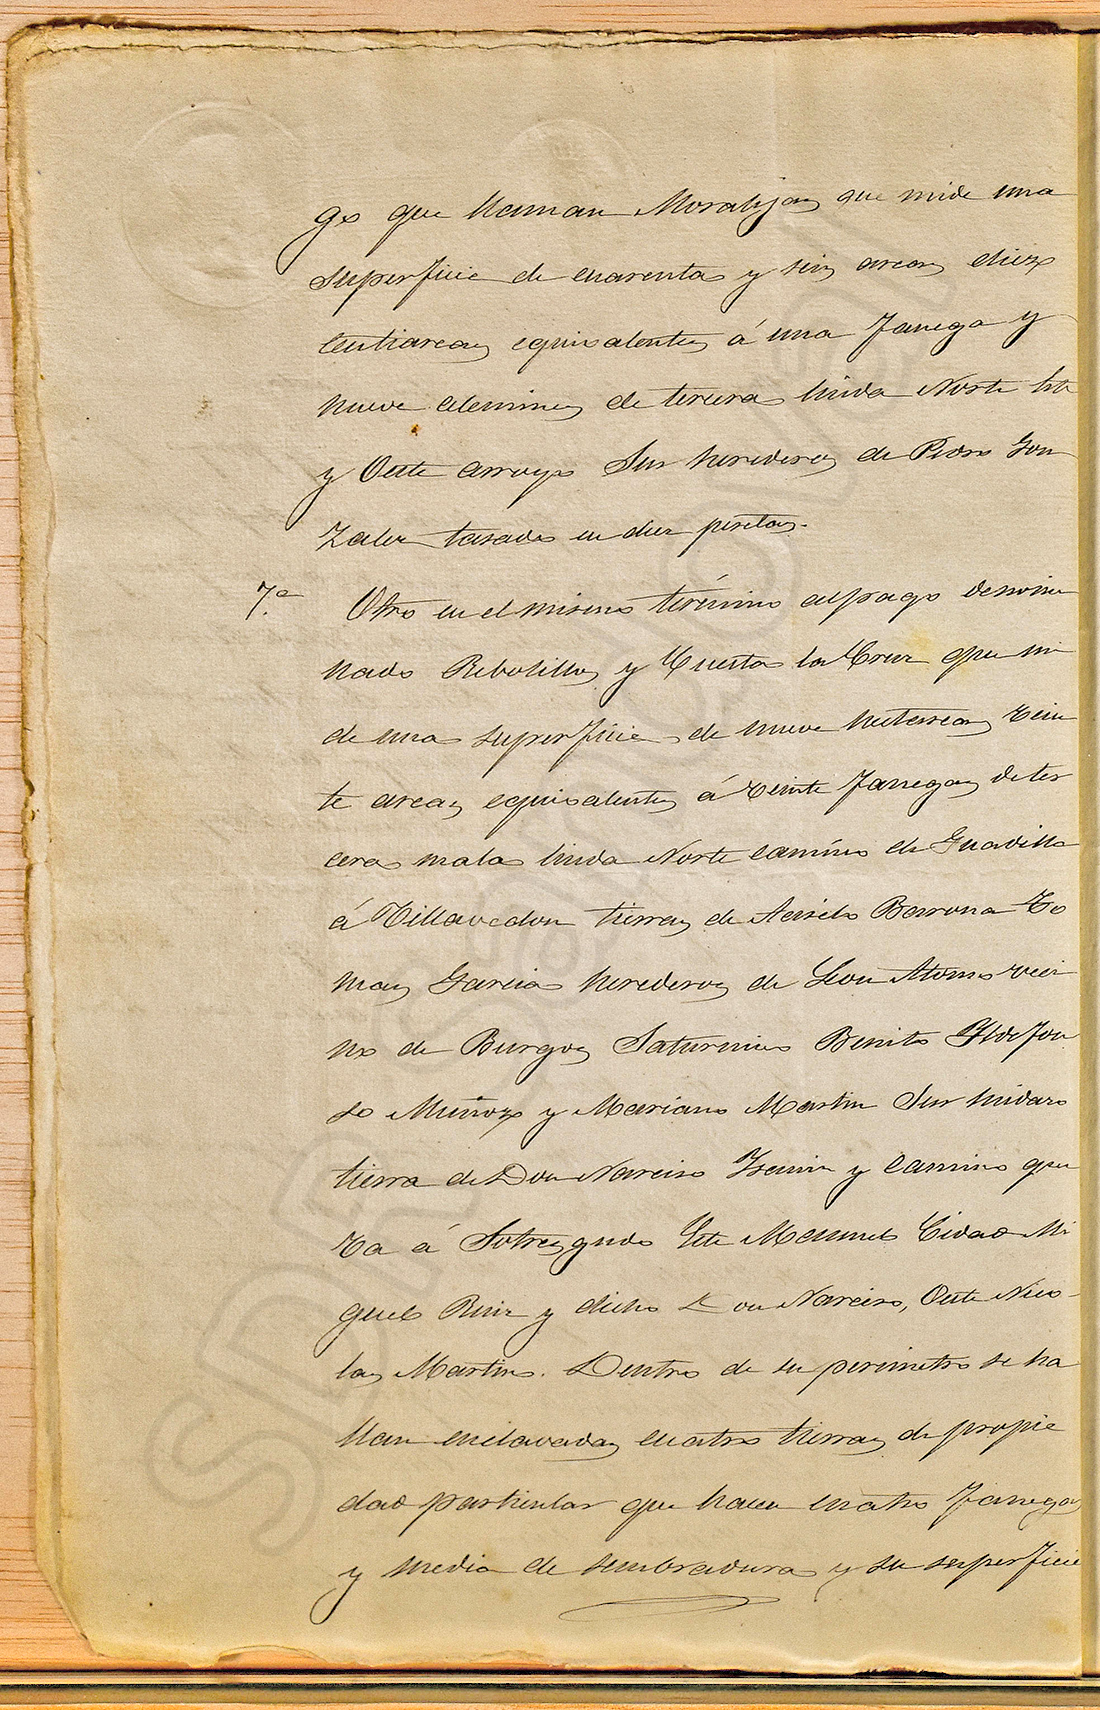 go que llaman Moralejas que mide una
superficie de cuarenta y seis areas diez
centiareas equivalentes á una fanega y
nueve celemines de tercera linda Norte Este
y Oeste arroyo Sur herederos de Pedro Gon
zalez tasada en diez pesetas.
7.ª Otro en el mismo término al pago denomi
nado Rebolillos y Cuesta la Cruz que mi
de una superficie de nueve hectareas vein
te areas equivalentes á veinte fanegas de ter
cera mala linda Norte camino de Guadilla
á Villavedon tierras de Aniceto Barrona To
mas Garcia herederos de Leon Alonso veci
no de Burgos Saturnino Benito Yldefon
so Muñoz y Mariano Martin Sur lindazo
tierra de Don Narciso y camino que
va á Sotresgudo Este Manuel Cidad Mi
guel Ruiz y dicho Don Narciso, Oeste Nico-
las Martin. Dentro de su perimetro se ha
llan enclavadas cuatro tierras de propie
dad particular que hacen cuatro fanegas
y media de sembradura y su superficie